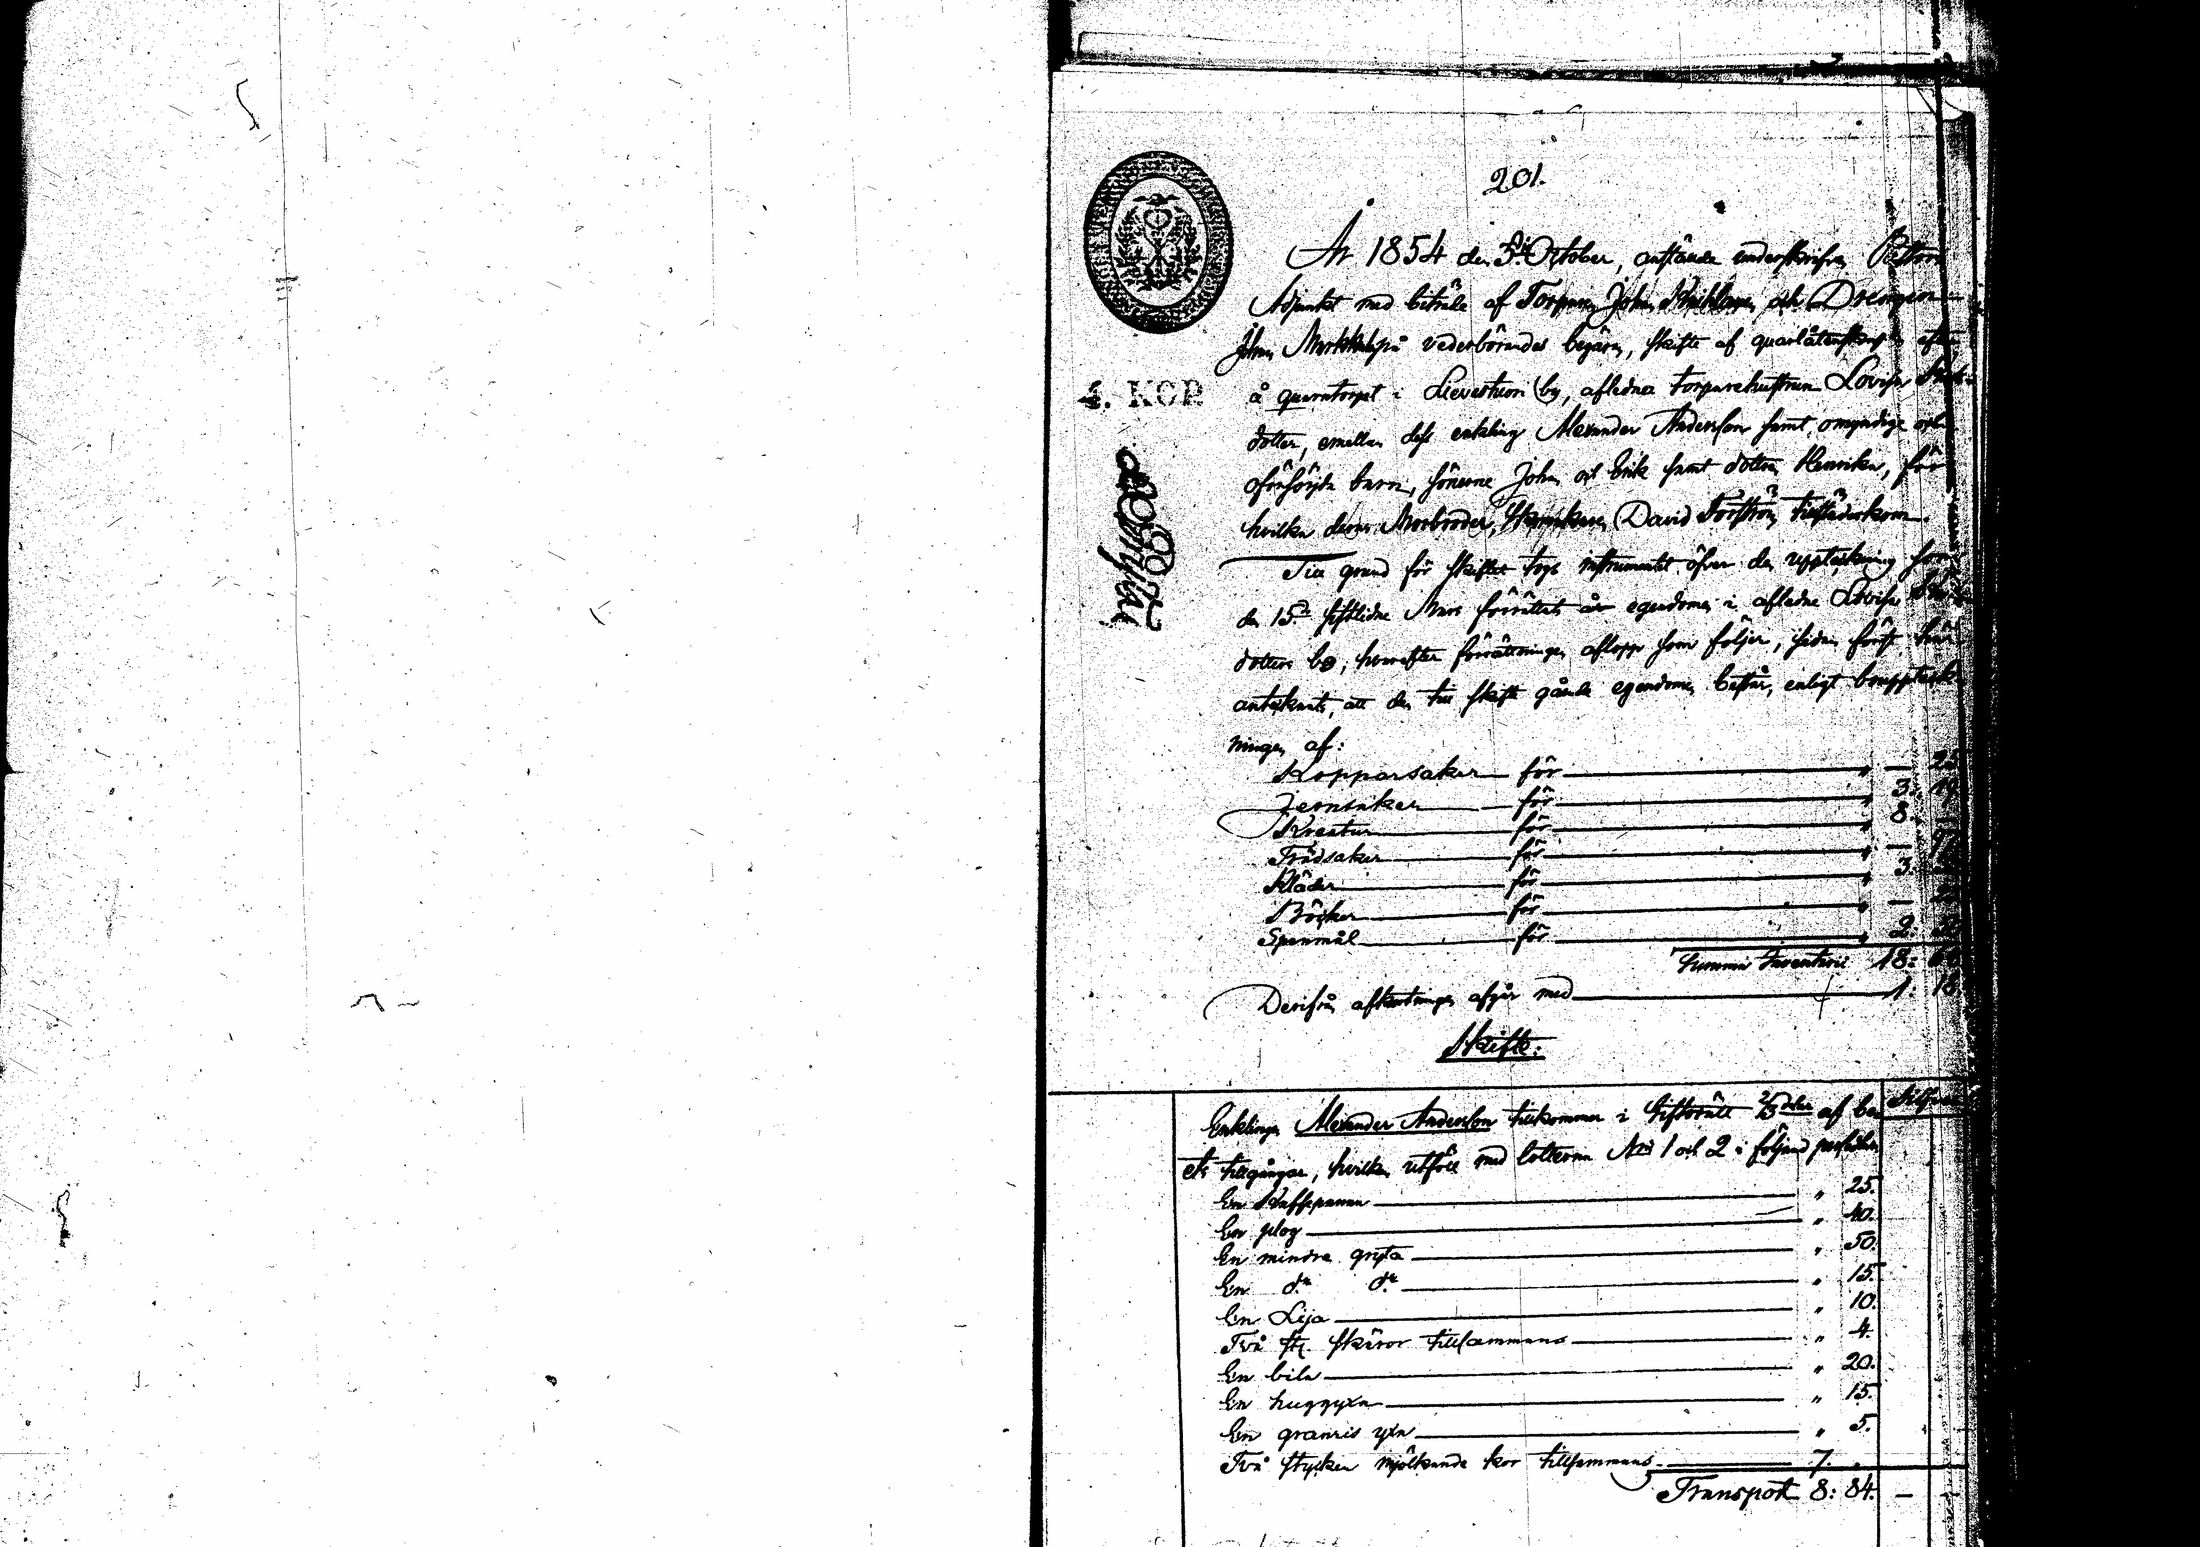 201.
År 1854 den 5te October, anstälde underskrifven Pastors
Adjunkt med biträde af Torparen Johan och Drengen
Johan på vederbörandes begäran, skifte af quarlåtenskapen efter
å quarntorpet i Lievestuori by, aflidna torparehustrun Lovisa
4. KOP
dotter, emellan dess enkling Alexander Andersson samt omyndige och
oförsörjda barn, sönerne Johan och Erik samt dottren Henrika, för
hvilka deras Morbroder, David Forsström tillstädeskom.
Till grund för skiftet togs instrumentet öfver den uppteckning som
den 15de sistlidne Mars förrättats är egendomen i aflidne Lovisa
dotters bo, hvarefter förrättningen aflopp som följer, sedan först
antecknats, att den till skifte gående egendomen består, enligt bouppteck
ningen af:
Kopparsaker för " — 25
Jernsaker för " 3. 19
Kreatur för " 8.
Trädsaker för " —
Kläder för " 3.
Böcker för " —
Spanmål för " 2:
Summa Inventarii 18:
Derifrån afkortningen afgår med 1. 18
Skifte:
Enklingen Alexander Andersson tillkommer i Giftorätt 2/3 delar af bo
ets tillgångar, hvilken utföll med lotterna No 1 och 2 i följand persedlar
En Kaffepanna " 25.
En plog " 40.
En mindre gryta " 50.
En do do " 15.
En Lija " 10.
Två st. skäror tillsammans " 4.
En bila " 20.
En huggyxa " 15.
En granris yxa " 5.
Två stycken mjölkande kor tillsammans 7. "
Transport 8: 84. — —